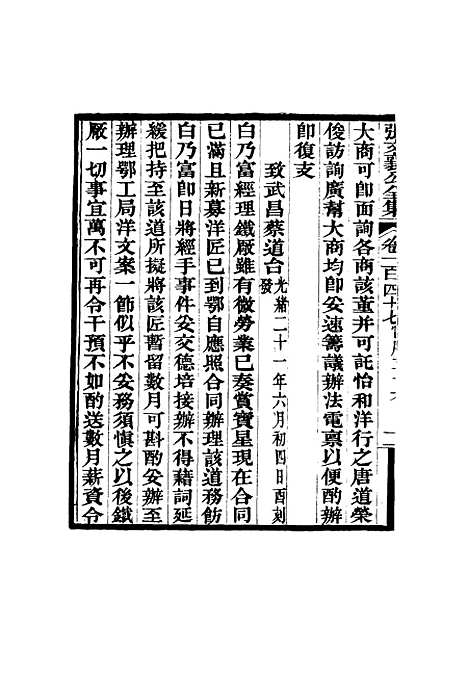 張文襄公全集 卷一百四十七
大商可卽面詢各商該董并可託怡和洋行之唐道榮
俊訪詢廣幫大商均卽妥速籌議辦法電禀以便酌辦
卽復支
致武昌蔡道台光緒二十一年六月初四日酉刻發
白乃富經理鐵厰雖有微勞業已奏賞寶星現在合同
已滿且新募洋匠已到鄂自應照合同辦理該道務飭
白乃富卽日將經手事件妥交德培接辦不得藉詞延
緩把持至該道所擬將該匠暫留數月可斟酌妥辦至
辦理鄂工局洋文案一節似乎不妥務須愼之以後鐵
厰一切事宜萬不可再令干預不如酌送數月薪資令